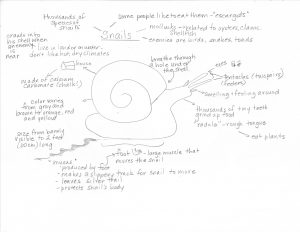 thousands of
species of
snails
some people like to eat them - "escargots"
Snails
mollusks - related to oysters, clams,
shellfish
enemies are birds, snakes, toads
crawls into
his shell when
enemy is
near
live in land or in water
don't like hot, dry climates
house
made of calcium
carbonate (chalk)
breathe through
a hole under
the shell
eyes
tentacles (two pairs)
(feelers)
smelling + feeling around
color varies
from grey and
brown to orange, red
and yellow
thousands of
tiny teeth
grind up food
"radula" - rough tongue
eat plants
size from barely
visible to 2 feet
long
foot - large muscle that
moves the snail
"mucus"
- produced by foot
- makes a slippery track for snail to move
- leaves silver trail
- protects snail's body